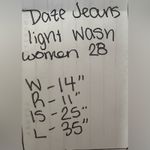 Daze Jeans
light wash
women 28
W - 14"
R - 11"
IS - 25"
L - 35"